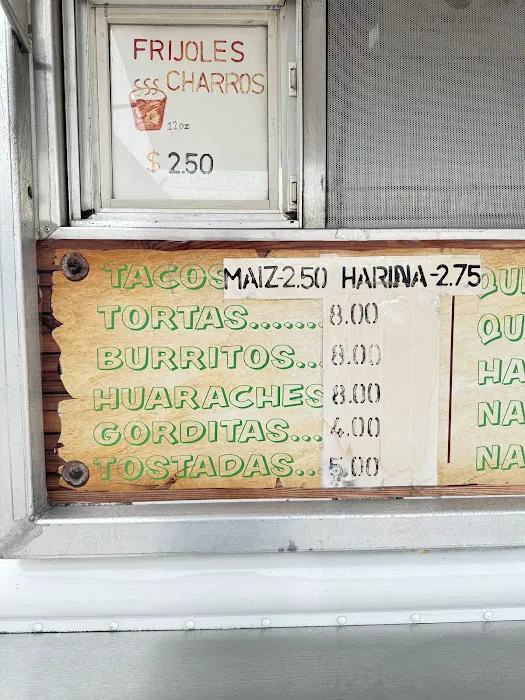 FRIJOLES
CHARROS
12oz
$2.50
TACOS MAIZ-2.50 HARINA-2.75
TORTAS....... 8.00
BURRITOS... 8.00
HUARACHES 8.00
GORDITAS... 4.00
TOSTADAS... 5.00
QU
HA
NA
NA